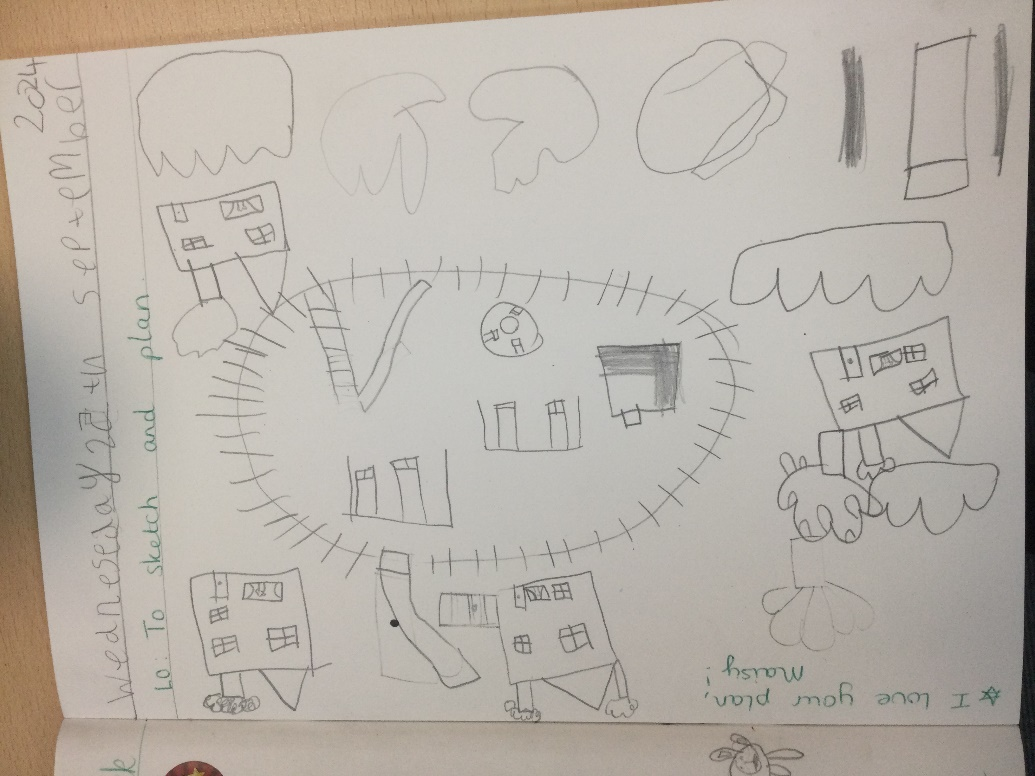 Wednesesday 25th September
2024
LO: To sketch and plan.
I love your plan,
Maisy!
k